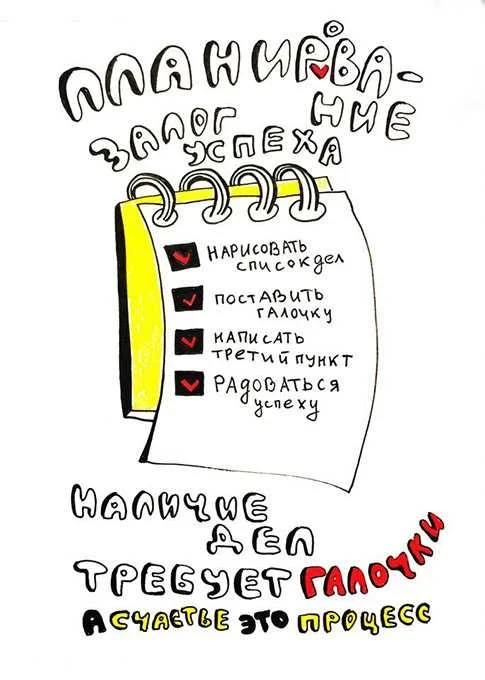 ПЛАНИРОВА-
НИЕ
ЗАЛОГ
УСПЕХА
НАРИСОВАТЬ
СПИСОК ДЕЛ
ПОСТАВИТЬ
ГАЛОЧКУ
НАПИСАТЬ
ТРЕТИЙ ПУНКТ
РАДОВАТЬСЯ
успеху
НАЛИЧИЕ
ДЕЛ
ТРЕБУЕТ ГАЛОЧКИ
А СЧАСТЬЕ ЭТО ПРОЦЕСС